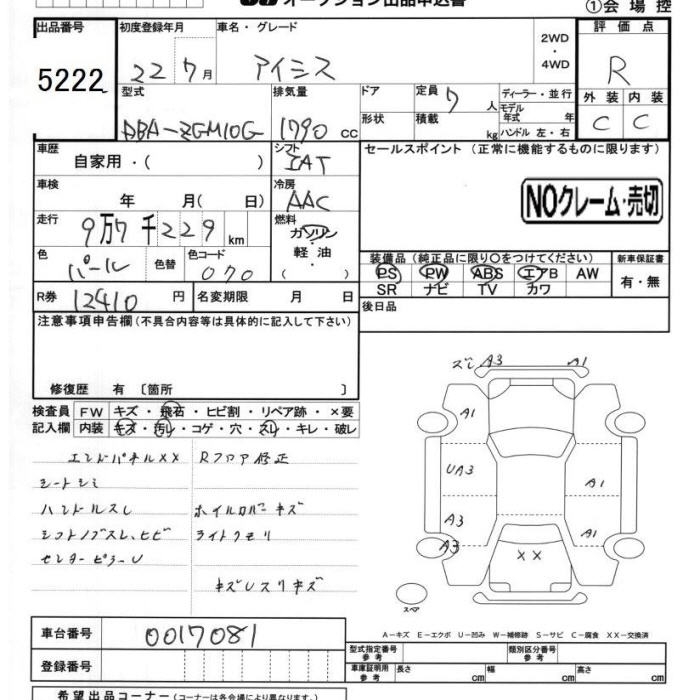 オークション出品申込書
①会場控
出品番号 初度登録年月 車名・グレード 2WD・4WD 評価点
5222 22 7月 アイシス R
型式 排気量 ドア 定員 7人 ディーラー・並行 外装 内装
形状 積載 kg モデル年式 年
DBA-ZGM10G 1790cc ハンドル 左・右 C C
車歴 自家用・( ) シフト IAT セールスポイント(正常に機能するものに限ります)
車検 年 月(日) 冷房 AAC
NOクレーム・売切
走行 9万7千229km 燃料 ガソリン・軽油・( )
色 パール 色替 色コード 070
装備品(純正品に限り○をつけてください) 新車保証書
PS PW ABS エアB AW 有・無
SR ナビ TV カワ
R券 12410円 名変期限 月 日
後日品
注意事項申告欄(不具合内容等は具体的に記入して下さい)
修復歴 有〔箇所 〕
検査員記入欄 FW キズ・飛石・ヒビ割・リペア跡・×要
内装 キズ・汚レ・コゲ・穴・スレ・キレ・破レ
エンドパネルXX Rフロア修正
シートシミ
ハンドルスレ ホイルカバーキズ
シフトノブスレ、ヒビ ライトクモリ
センターピラーU
キズレスリキズ
ズレ A3 A1
A1
UA3 A1
A3 A1
A3
XX
スペア
A-キズ E-エクボ U-凹み W-補修跡 S-サビ C-腐食 XX-交換済
車台番号 0017081
型式指定番号 参考 類別区分番号 参考
登録番号
車庫証明用 参考 長さ cm 幅 cm 高さ cm
希望出品コーナー(コーナーは各会場により異なります。)